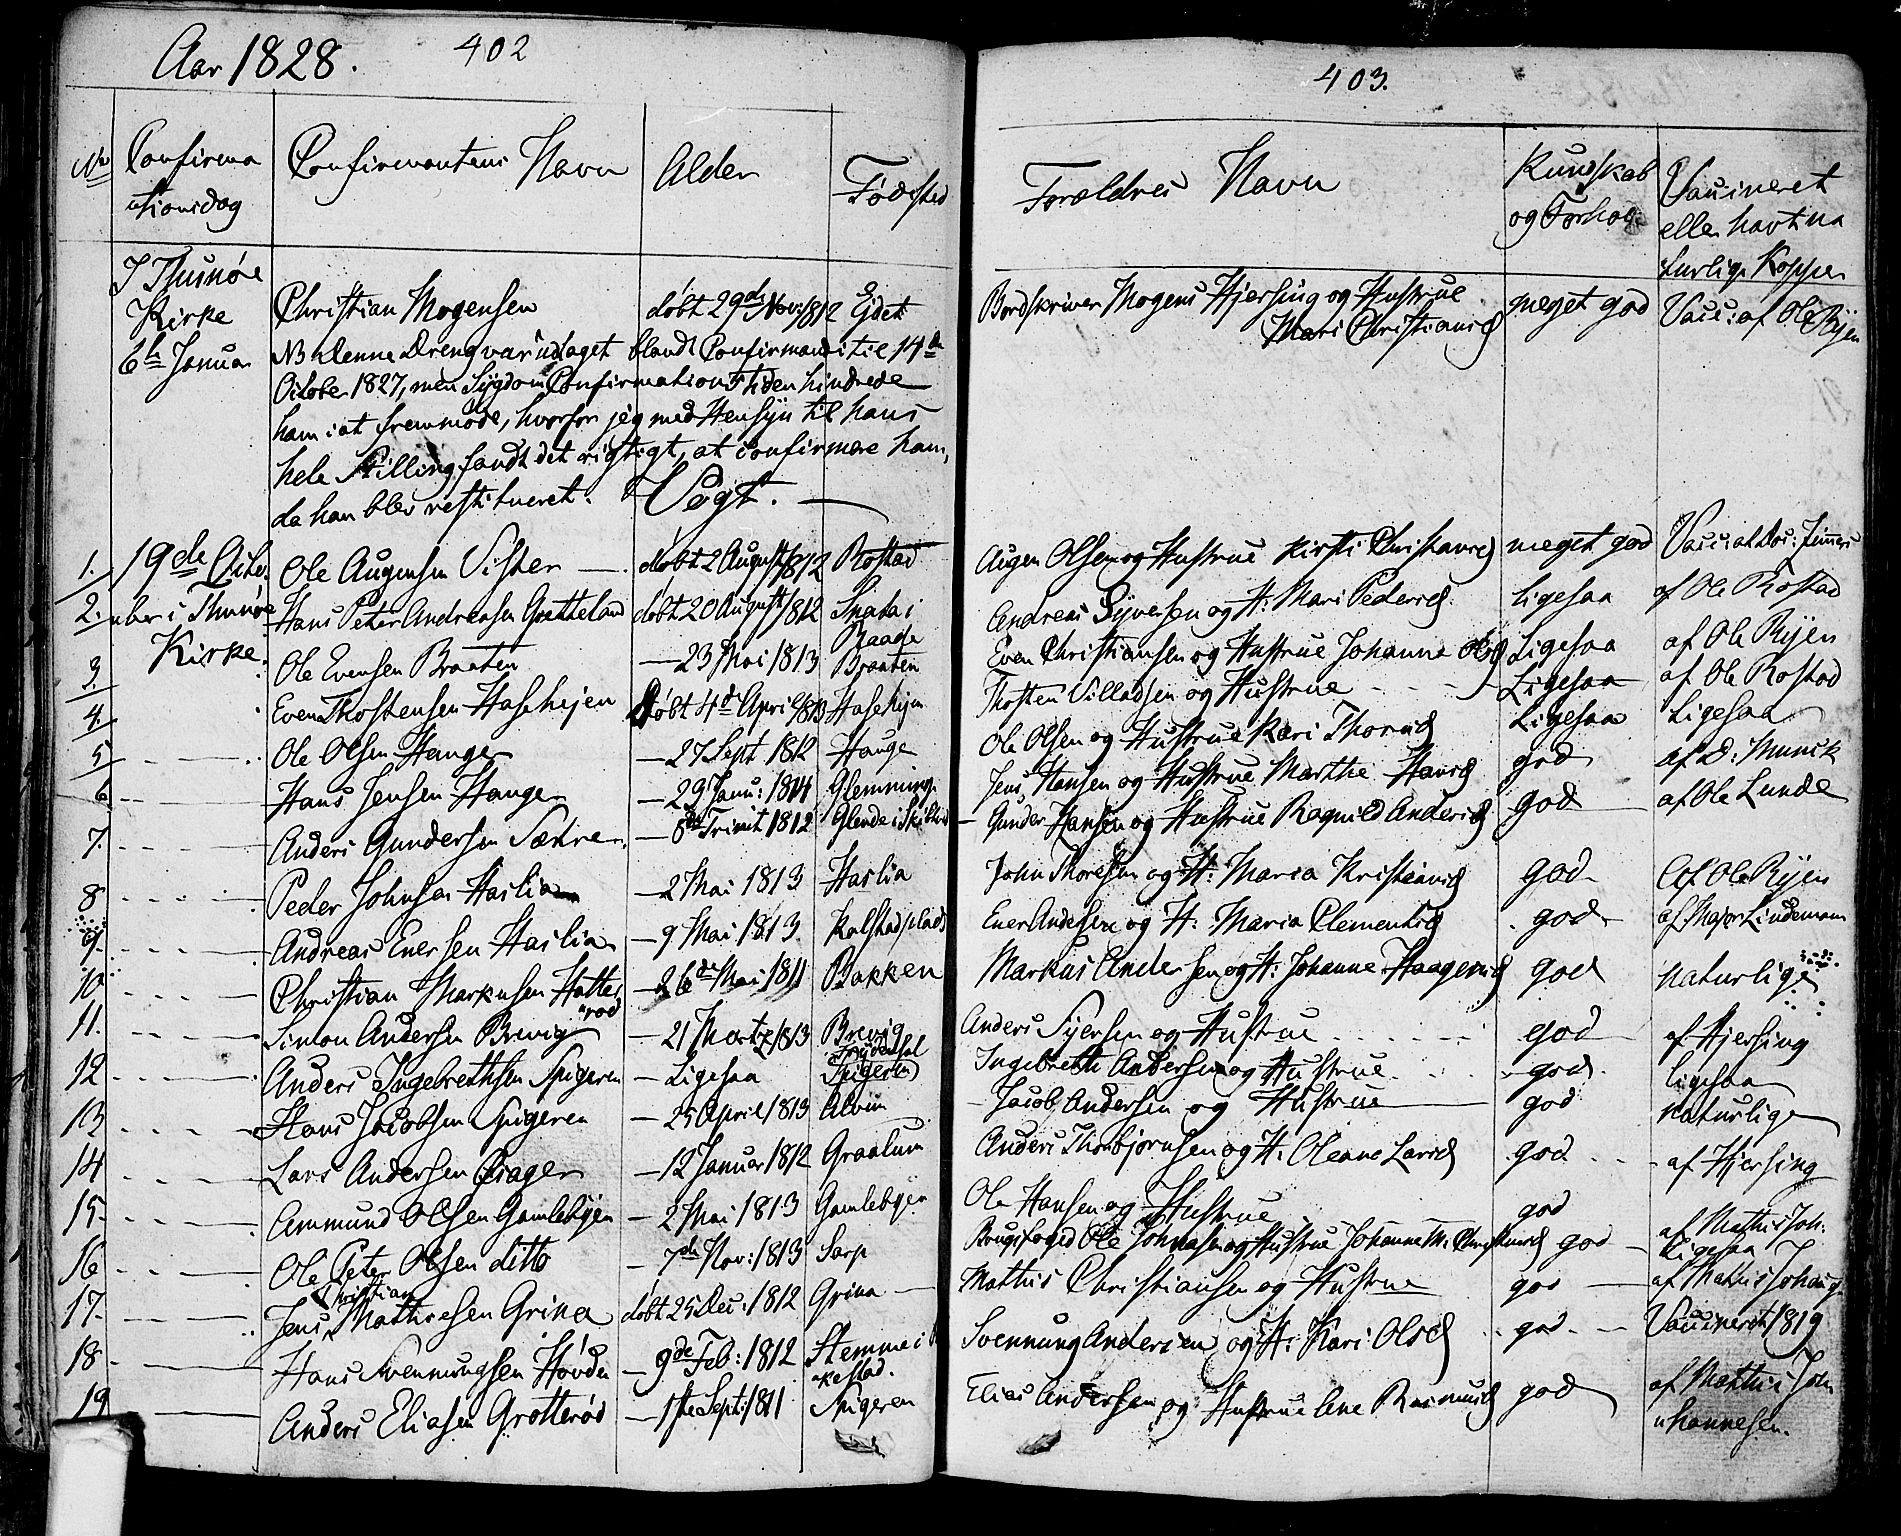 Aar 1828.
402
No
Confirma
tionsdag
Confirmantens Navn
Alder
Fødsted
I Thunøe
Kirke
6te Januar
Christian Mogensen
døbt 29de Nov: 1812
Ejdet
NB denne Dreng var udtaget blandt Confirmandi til 14de
October 1827, men Sygdom Confirmations Tiden hindrede
ham i at fremmøde, hvorfor jeg med Hensyn til hans
hele Stilling fandt det rigtigt, at confirmere ham,
da han blev restitueret. Vogt.
1. 19de Octo- Ole Augensen Vister døbt 2 August 1812 Rostad
2. ber i Thunøe Hans Peter Andreasen Grotteland døbt 20 August 1812 Snada i
Raade
3. Kirke. Ole Evensen Braaten — 23 Mai 1813 Braaten
4. Even Thostensen Haslehejen døbt 4de April 1813 Haslehejn
5 Ole Olsen Hauge — 27 Sept 1812 Hauge
6 Hans Jensen Hauge — 29 Janu: 1814 Glemminge
7. Anders Gundersen Sætre — 8de Trinit 1812 Glende i
8 Peder Johnsen Haslia — 2 Mai 1813 Haslia
9. Andreas Enersen Haslia — 9 Mai 1813 Kalstadplads
10 Christian Markusen Hatte — 26de Mai 1811 Bakken
rød
11. Simon Andersen Brevig — 21 Martz 1813 Brevig
12 Anders Ingebrethsen Spigeren — Ligesaa Spigeren
13 Hans Jacobsen Spigeren — 25 April 1813 Alvim
14 Lars Andersen Prager — 12 Januar 1812 Graalum
15. Ammund Olsen Gamlebyen — 2 Mai 1813 Gamlebyen
16 Ole Peter Olsen ditto — 7de Nov: 1813 Sarp
Christian
17. Jens Mathiesen Grina døbt 25 Dec: 1812 Grina
18 Hans Svennungsen Hovde — 9de Feb: 1812 Stemme i
kestad.
19 Anders Eliasen Grotterød — 1ste Sept: 1811 Spigeren
403.
Forældres Navn
Kundskab
og Forhold
Vaccineret
eller havt na
turlige Kopper
Bordskriver Mogens Hjersing og Hustrue meget god Vacc: af Ole Ryen
Mari Christiansd
Augen Olsen og Hustrue Kirsti Christiansd meget god
Andreas Syversen og H: Mari Pedersd. Ligesaa af Ole Rostad
Even Christiansen og Hustrue Johanne Olsd Ligesaa af Ole Ryen
Thosten Villadsen og Hustrue Ligesaa af Ole Rostad
Ole Olsen og Hustrue Kari Thorsd Ligesaa Ligesaa
Jens Hansen og Hustrue Marthe Hansd god af D: Munck
Gunder Hansen og Hustrue Ragnild Andersd god af Ole Lunde
John Thoresen og H: Maria Kristiansd god Af Ole Ryen
Ener Andersen og H: Maria Clementsd god af Major Lindeman
Markus Andersen og H: Johanne Haagensd god naturlige
Anders Syersen og Hustrue god af Hjersing
Ingebreth Andersen og Hustrue god. ligesaa
Jacob Andersen og Hustrue god naturlige
Anders Thorbjørnsen og H: Oleane Larsd god af Hjersing
Ole Hansen og Hustrue god af Mathis Joh:
Brugsfoged Ole Johnsen og Hustrue Johanne M: Christiansd god Ligesaa
Mathis Christiansen og Hustrue god af Mathis Johans
Svennung Andersen og H: Kari Olsd god Vaccineret 1819
Elias Andersen og Hustrue Ane Rasmusd god af Mathis Jo
hannesen.